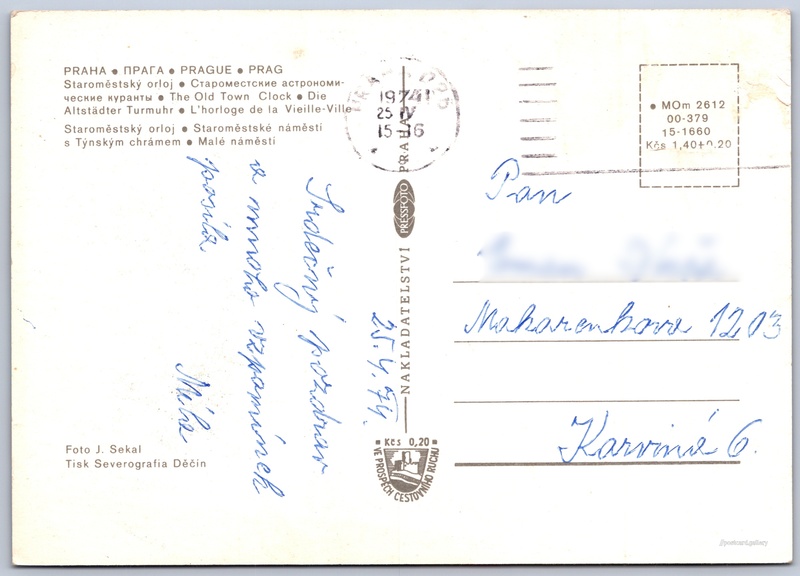 PRAHA ● ПРАГА ● PRAGUE ● PRAG
Staroměstský orloj ● Староместские астрономи-
ческие куранты ● The Old Town Clock ● Die
Altstädter Turmuhr ● L'horloge de la Vieille-Ville
Staroměstský orloj ● Staroměstské náměstí
s Týnským chrámem ● Malé náměstí
Srdečný pozdrav
a mnoho vzpomínek
posílá
Míla
25.4.74.
Foto J. Sekal
Tisk Severografia Děčín
1974
25 IV
15-16
NAKLADATELSTVÍ PRESSFOTO PRAHA
Kčs 0,20
VE PROSPĚCH CESTOVNÍHO RUCHU
● MOm 2612
00-379
15-1660
Kčs 1,40+0.20
Pan
Makarenkova 1203
Karviná 6.